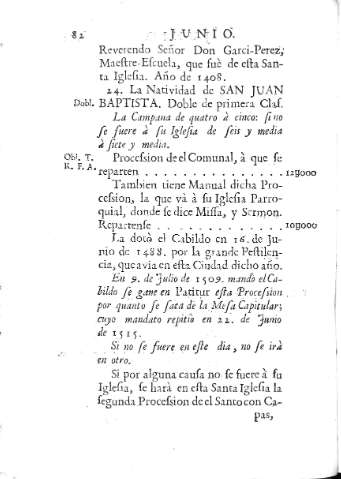 82 JUNIO.
Reverendo Señor Don Garci-Perez,
Maestre-Escuela, que fuè de esta San-
ta Iglesia. Año de 1408.
24. La Natividad de SAN JUAN
Dobl. BAPTISTA. Doble de primera Clas.
La Campana de quatro à cinco: si no
se fuere à su Iglesia de seis y media
à siete y media.
Obl. T. Procession de el Comunal, à que se
K. F. A. reparten . . . . . . . . . . . . 12y000
Tambien tiene Manual dicha Pro-
cession, la que và à su Iglesia Parro-
quial, donde se dice Missa, y Sermon.
Repartense . . . . . . . . . . . 10y000
La dotò el Cabildo en 16. de Ju-
nio de 1488. por la grande Pestilen-
cia, que avia en esta Ciudad dicho año.
En 9. de Julio de 1509. mandò el Ca-
bildo se gane en Patitur esta Procession
por quanto se sata de la Mesa Capitular;
cuyo mandato repitiò en 22. de Junio
de 1515.
Si no se fuere en este dia, no se irà
en otro.
Si por alguna causa no se fuere à su
Iglesia, se harà en esta Santa Iglesia la
segunda Procession de el Santo con Ca-
pas,